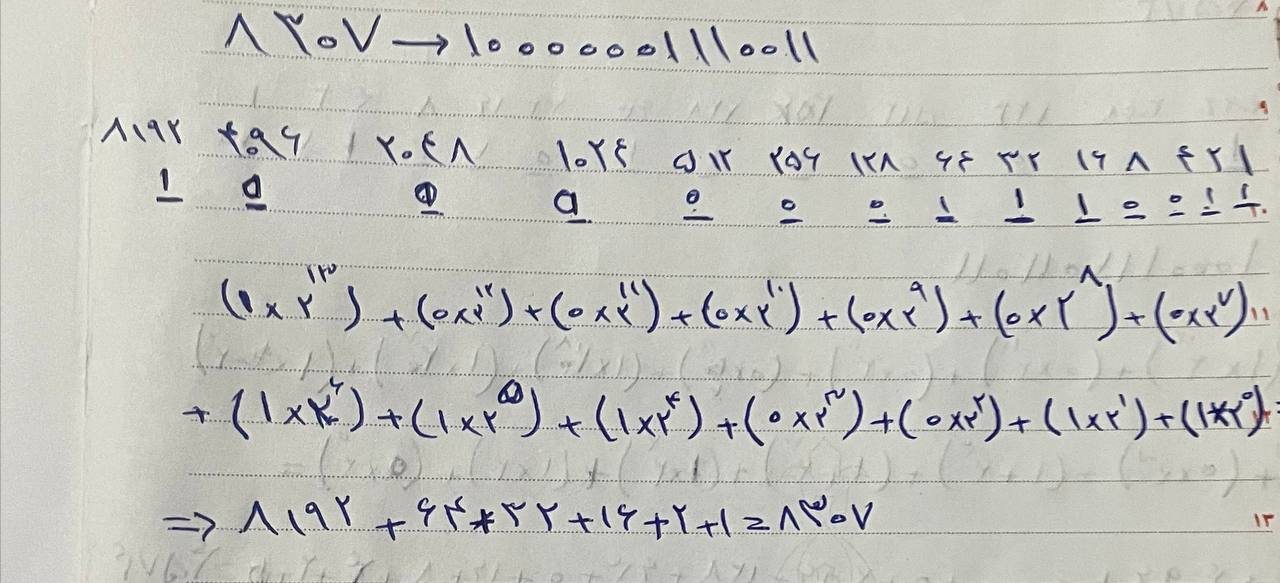 ۸۳۰۷ → ۱۰۰۰۰۰۰۱۱۱۰۰۱۱
۸۱۹۲ ۴۰۹۶ ۲۰۴۸ ۱۰۲۴ ۵۱۲ ۲۵۶ ۱۲۸ ۶۴ ۳۲ ۱۶ ۸ ۴ ۲ ۱
۱ ۰ ۰ ۰ ۰ ۰ ۰ ۱ ۱ ۱ ۰ ۰ ۱ ۱
(۱×۲^۱۳) + (۰×۲^۱۲) + (۰×۲^۱۱) + (۰×۲^۱۰) + (۰×۲^۹) + (۰×۲^۸) + (۰×۲^۷)
+ (۱×۲^۶) + (۱×۲^۵) + (۱×۲^۴) + (۰×۲^۳) + (۰×۲^۲) + (۱×۲^۱) + (۱×۲^۰) =
=> ۸۱۹۲ + ۶۴ + ۳۲ + ۱۶ + ۲ + ۱ = ۸۳۰۷